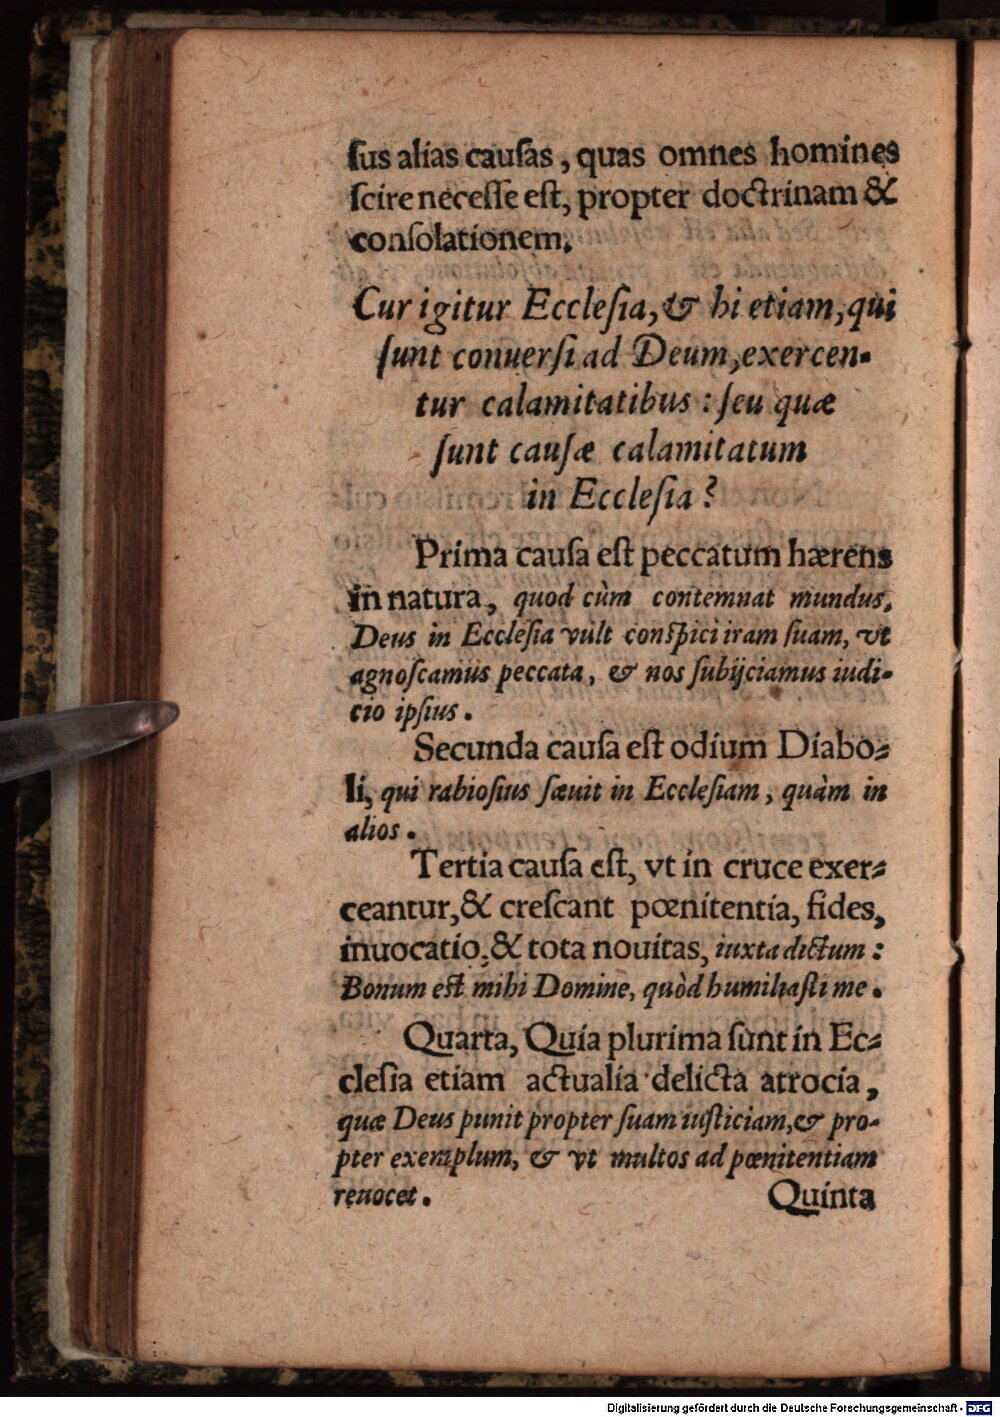 ſus alias cauſas, quas omnes homines
ſcire neceſſe eſt, propter doctrinam &
conſolationem.
Cur igitur Eccleſia, & hi etiam, qui
ſunt conuerſi ad Deum, exercen-
tur calamitatibus: ſeu quæ
ſunt cauſæ calamitatum
in Eccleſia?
Prima cauſa eſt peccatum hærens
in natura, quod cùm contemnat mundus,
Deus in Eccleſia vult conſpici iram ſuam, vt
agnoſcamus peccata, & nos ſubijciamus iudi-
cio ipſius.
Secunda cauſa eſt odium Diabo-
li, qui rabioſius ſæuit in Eccleſiam, quàm in
alios.
Tertia cauſa eſt, vt in cruce exer-
ceantur, & creſcant pœnitentia, fides,
inuocatio, & tota nouitas, iuxta dictum:
Bonum eſt mihi Domine, quòd humiliaſti me.
Quarta, Quia plurima ſunt in Ec-
cleſia etiam actualia delicta atrocia,
quæ Deus punit propter ſuam iuſticiam, & pro-
pter exemplum, & vt multos ad pœnitentiam
reuocet. Quinta
Digitalisierung gefördert durch die Deutsche Forschungsgemeinschaft - DFG